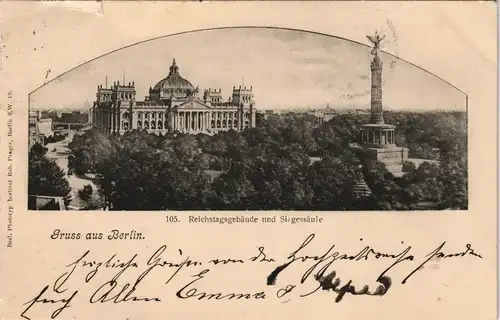 105. Reichstagsgebäude und Siegessäule
Gruss aus Berlin.
herzliche Grüße von der Hochzeitsreise senden
Euch Allen Emma &
Berl. Phototyp. Institut Rob. Prager, Berlin N.W. 19.